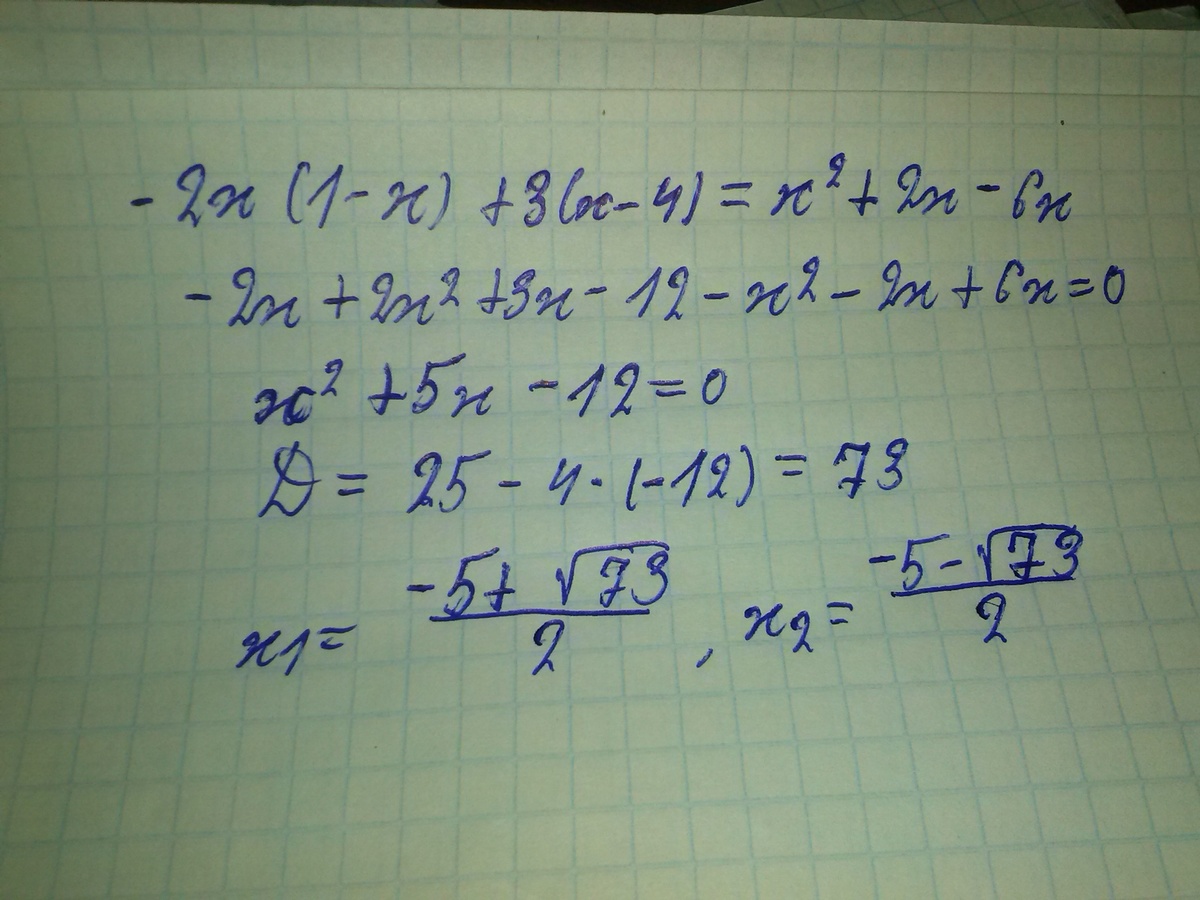 -2x(1-x)+3(x-4)=x²+2x-6x
-2x+2x²+3x-12-x²-2x+6x=0
x²+5x-12=0
D=25-4·(-12)=73
x₁=(-5+√73)/2, x₂=(-5-√73)/2